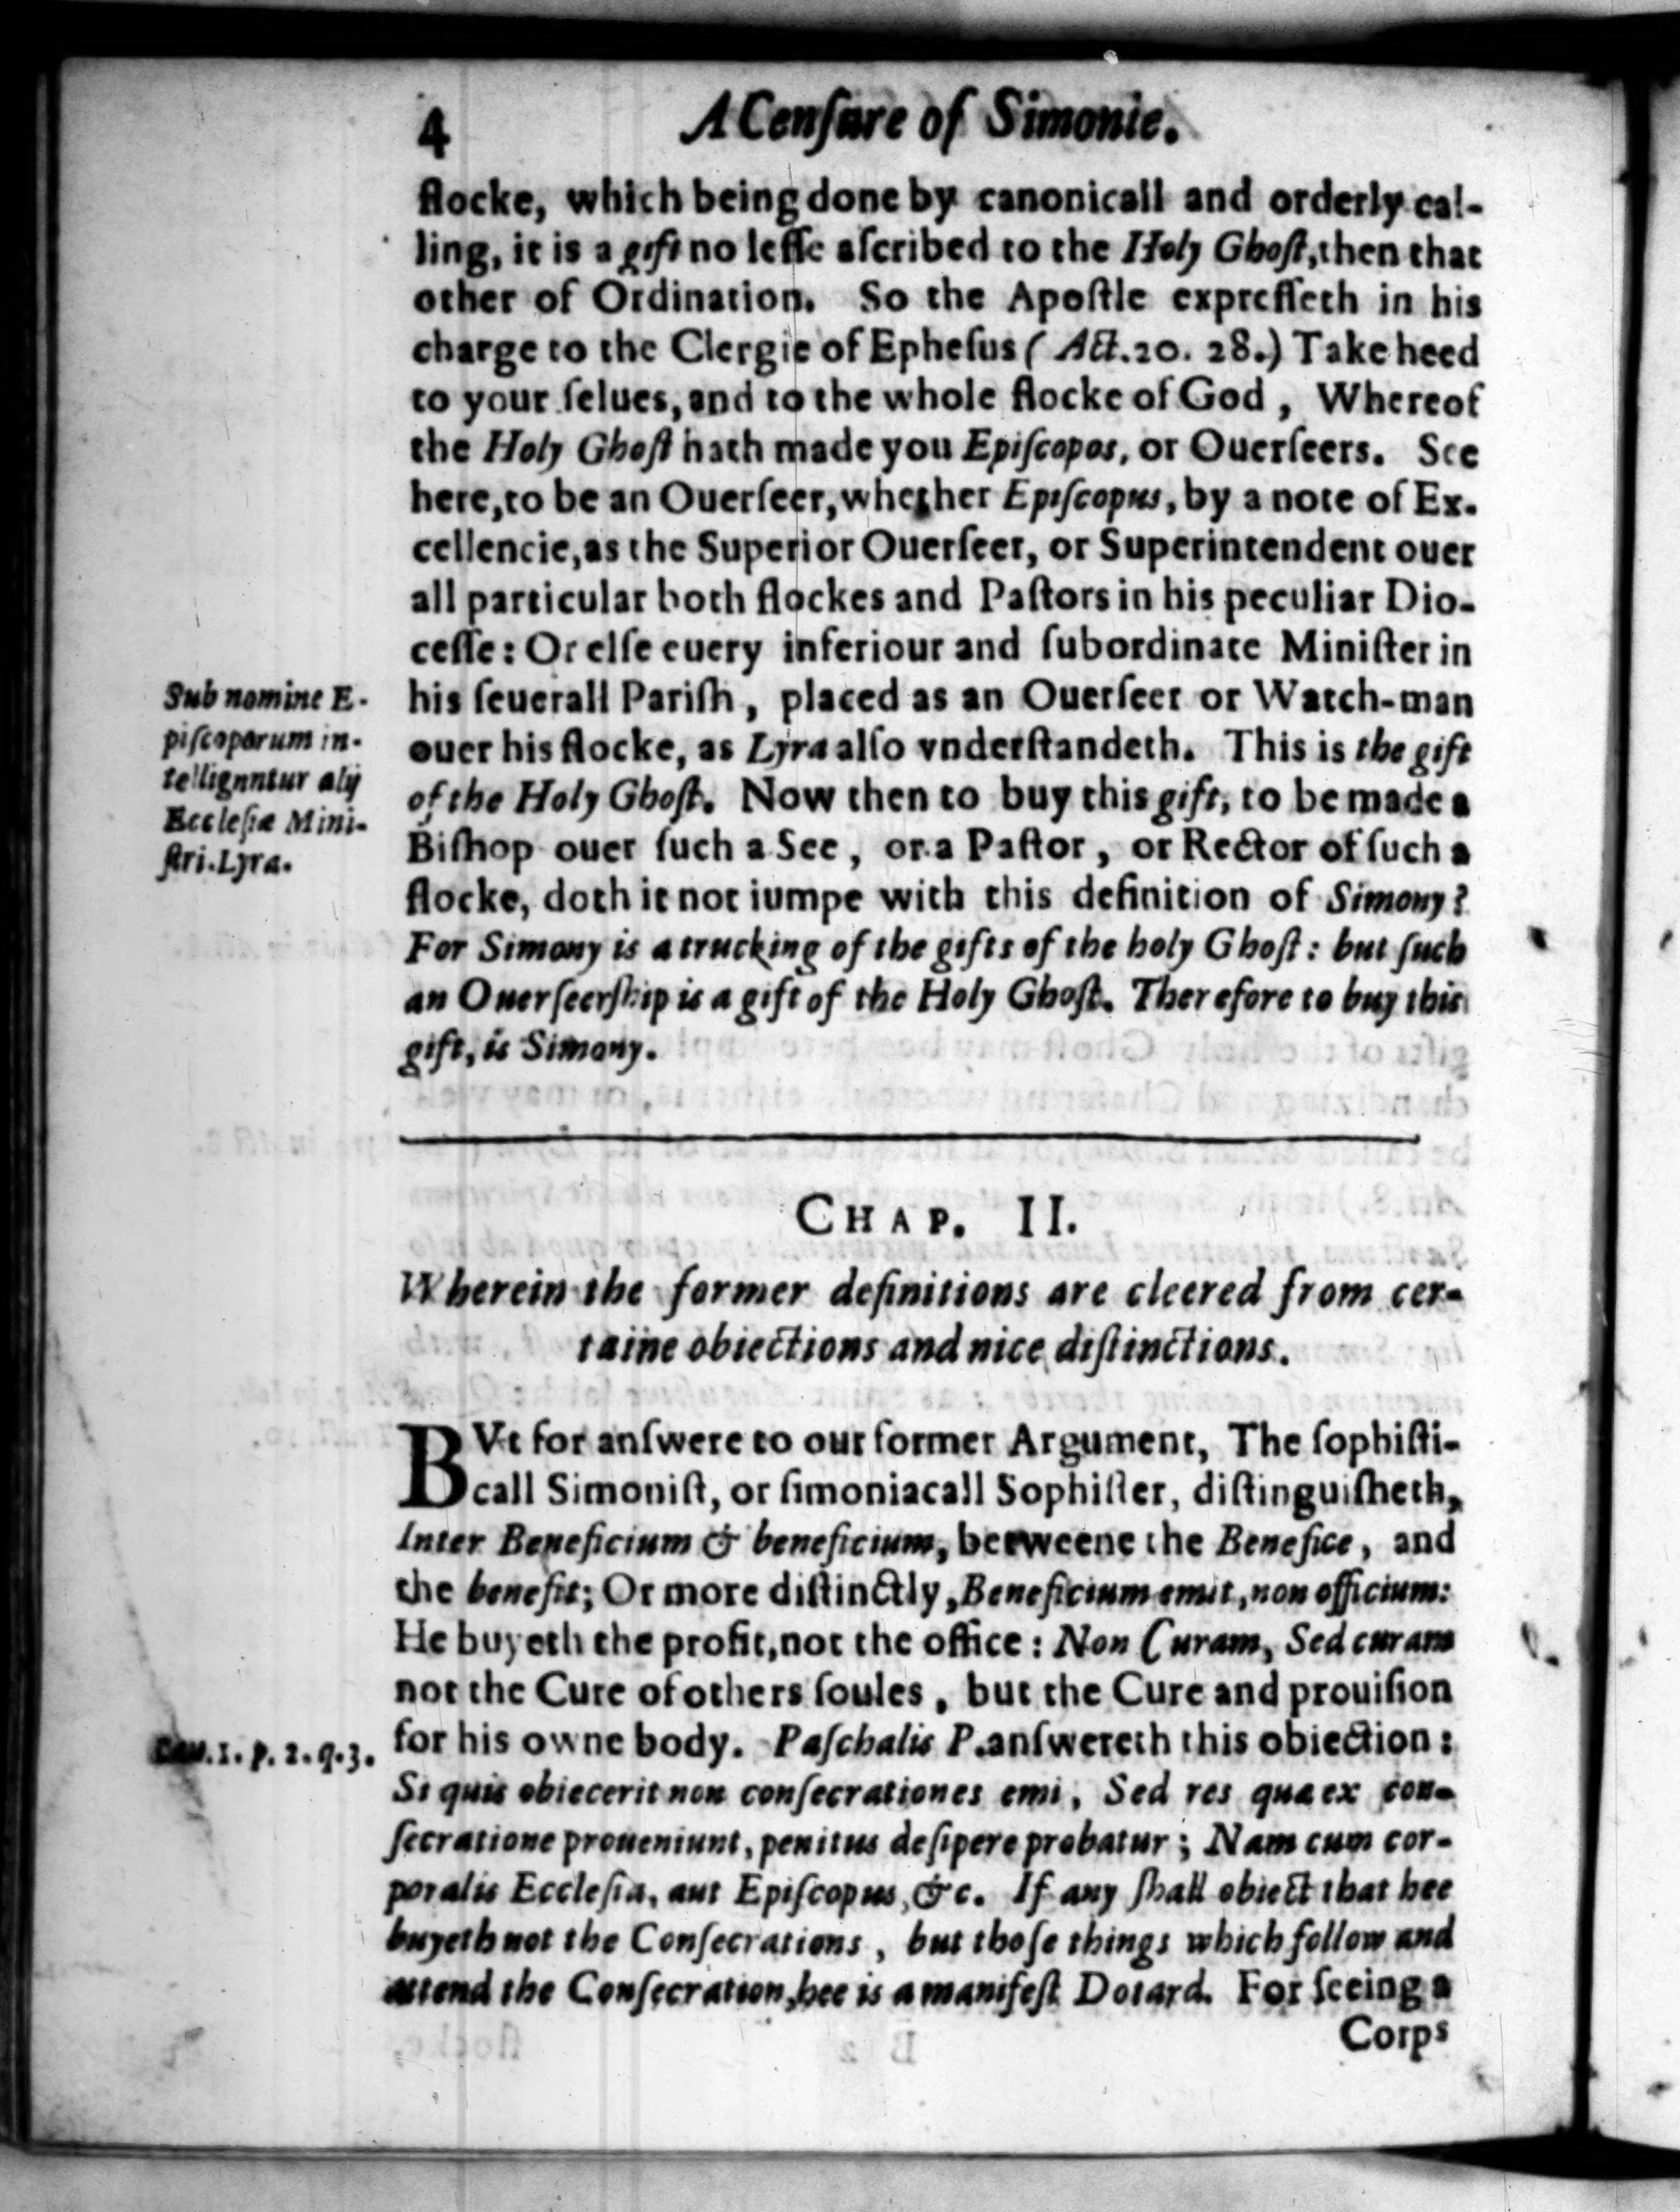 4 A Cenſure of Simonie.
flocke, which being done by canonicall and orderly cal-
ling, it is a gift no leſſe aſcribed to the Holy Ghoſt, then that
other of Ordination. So the Apoſtle expreſſeth in his
charge to the Clergie of Epheſus ( Act. 20. 28.) Take heed
to your ſelues, and to the whole flocke of God, Whereof
the Holy Ghoſt hath made you Epiſcopos, or Ouerſeers. See
here, to be an Ouerſeer, whether Epiſcopus, by a note of Ex-
cellencie, as the Superior Ouerſeer, or Superintendent ouer
all particular both flockes and Paſtors in his peculiar Dio-
ceſſe: Or elſe euery inferiour and ſubordinate Miniſter in
his ſeuerall Pariſh, placed as an Ouerſeer or Watch-man
ouer his flocke, as Lyra alſo vnderſtandeth. This is the gift
of the Holy Ghoſt. Now then to buy this gift, to be made a
Biſhop ouer ſuch a See, or a Paſtor, or Rector of ſuch a
flocke, doth it not iumpe with this definition of Simony?
For Simony is a trucking of the gifts of the holy Ghoſt: but ſuch
an Ouerſeerſhip is a gift of the Holy Ghoſt. Therefore to buy this
gift, is Simony.
Sub nomine E-
piſcoporum in-
tellignntur alij
Eccleſiæ Mini-
ſtri. Lyra.
CHAP. II.
Wherein the former definitions are cleered from cer-
taine obiections and nice diſtinctions.
BVt for anſwere to our former Argument, The ſophiſti-
call Simoniſt, or ſimoniacall Sophiſter, diſtinguiſheth,
Inter Beneficium & beneficium, betweene the Benefice, and
the benefit; Or more diſtinctly, Beneficium emit, non officium:
He buyeth the profit, not the office: Non Curam, Sed curam
not the Cure of others ſoules, but the Cure and prouiſion
for his owne body. Paſchalis P. anſwereth this obiection:
Si quis obiecerit non conſecrationes emi, Sed res quæ ex con-
ſecratione proueniunt, penitus deſipere probatur; Nam cum cor-
poralis Eccleſia, aut Epiſcopus, &c. If any ſhall obiect that hee
buyeth not the Conſecrations, but thoſe things which follow and
attend the Conſecration, hee is a manifeſt Dotard. For ſeeing a
Cau. 1. p. 2. q. 3.
Corps